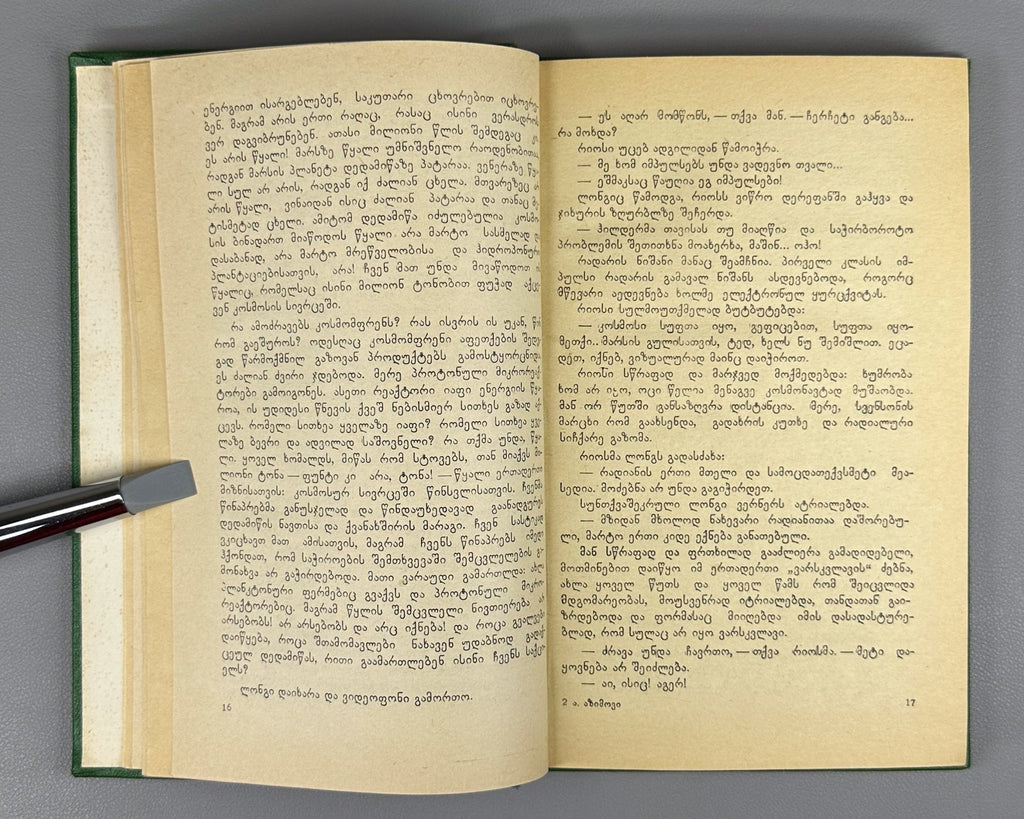 ენერგიით ისარგებლებენ, საკუთარი ცხოვრებით
ბენ. მაგრამ არის ერთი რაღაც, რასაც ისინი ვერასდროს
ვერ დაგვიბრუნებენ. ათასი მილიონი წლის შემდეგაც
ეს არის წყალი! მარსზე წყალი უმნიშვნელო რაოდენობითაა,
რადგან მარსის პლანეტა დედამიწაზე პატარაა. ვენერაზე
ლი სულ არ არის, რადგან იქ ძალიან ცხელა. მთვარეზეც
არის წყალი, ვინაიდან ისიც ძალიან პატარაა და თანაც
ტისმეტად ცხელი. ამიტომ დედამიწა იძულებულია
სის ბინადართ მიაწოდოს წყალი არა მარტო სასმელად
დასაბანად, არა მარტო მრეწველობისა და ჰიდროპონური
პლანტაციებისათვის, არა! ჩვენ მათ უნდა მივაწოდოთ
წყალიც, რომელსაც ისინი მილიონ ტონობით ფუჭად
ვენ კოსმოსის სივრცეში.
რა ამოძრავებს კოსმომფრენს? რას ისვრის ის უკან,
რომ გაეშუროს? ოდესღაც კოსმომფრენი აფეთქების
გად წარმოქმნილ გაზოვან პროდუქტებს გამოსტყორცნიდა.
ეს ძალიან ძვირი ჯდებოდა. მერე პროტონული
ტორები გამოიგონეს. ასეთი რეაქტორი იაფი ენერგიის
როა, ის უდიდესი წნევის ქვეშ ნებისმიერ სითხეს გაზად
ცევს. რომელი სითხეა ყველაზე იაფი? რომელი სითხეა
ლაზე ბევრი და ადვილად საშოვნელი? რა თქმა უნდა,
ლი. ყოველ ხომალდს, მიწას რომ სტოვებს, თან მიაქვს
ლიონი ტონა — ფუნტი კი არა, ტონა! — წყალი ერთადერთი
მიზნისათვის: კოსმოსურ სივრცეში წინსვლისათვის.
წინაპრებმა განუსჯელად და წინდაუხედავად გაანადგურეს
დედამიწის ნავთისა და ქვანახშირის მარაგი. ჩვენ
ვკიცხავთ მათ ამისათვის, მაგრამ ჩვენს წინაპრებს
ჰქონდათ, რომ საჭიროების შემთხვევაში შემცვლელების
მონახვა არ გაჭირდებოდა. მათი ვარაუდი გამართლდა:
პლანქტონური ფერმებიც გვაქვს და პროტონული
რეაქტორებიც. მაგრამ წყლის შემცვლელი ნივთიერება
არსებობს! არ არსებობს და არც იქნება! და როცა
დაიწყება, როცა შთამომავლები ნახავენ უდაბნოდ
ცეულ დედამიწას, რითი გაამართლებენ ისინი ჩვენს
ელს?
ლონგი დაიხარა და ვიდეოფონი გამორთო.
16
— ეს აღარ მომწონს, — თქვა მან. — ჩერჩეტი განგება...
რა მოხდა?
რიოსი უცებ ადგილიდან წამოიჭრა.
— მე ხომ იმპულსებს უნდა ვადევნო თვალი...
— ეშმაკსაც წაუღია ეგ იმპულსები!
ლონგიც წამოდგა, რიოსს ვიწრო დერეფანში გაჰყვა და
ჯიხურის ზღურბლზე შეჩერდა.
— ჰილდერმა თავისას თუ მიაღწია და საჭირბოროტო
პრობლემის შეთითხნა მოახერხა, მაშინ... ოჰო!
რადარის ნიშანი მანაც შეამჩნია. პირველი კლასის იმ-
პულსი რადარის გამავალ ნიშანს ასდევნებოდა, როგორც
მწევარი აედევნება ხოლმე ელექტრონულ ყურცქვიტას.
რიოსი სულმოუთქმელად ბუტბუტებდა:
— კოსმოსი სუფთა იყო, გეფიცებით, სუფთა იყო-
მეთქი.. მარსის გულისათვის, ტედ, ხელს ნუ შემიშლით. ეცა-
დეთ, იქნებ, ვიზუალურად მაინც დაიჭიროთ.
რიოსი სწრაფად და მარჯვედ მოქმედებდა: ხუმრობა
ხომ არ იყო, ოცი წელია მენაგვე კოსმონავტად მუშაობდა.
მან ორ წუთში განსაზღვრა დისტანცია. მერე, სვენსონის
მარცხი რომ გაახსენდა, გადახრის კუთხე და რადიალური
სიჩქარე გაზომა.
რიოსმა ლონგს გადასძახა:
— რადიანის ერთი მთელი და სამოცდათექვსმეტი მეა-
სედია. მოძებნა არ უნდა გაგიჭირდეთ.
სუნთქვაშეკრული ლონგი ვერნერს ატრიალებდა.
— მზიდან მხოლოდ ნახევარი რადიანითაა დაშორებუ-
ლი, მარტო ერთი კიდე ექნება განათებული.
მან სწრაფად და ფრთხილად გააძლიერა გამადიდებელი,
მოთმინებით დაიწყო იმ ერთადერთი „ვარსკვლავის“ ძებნა,
ახლა ყოველ წუთს და ყოველ წამს რომ შეიცვლიდა
მდგომარეობას, მოუსვენრად იტრიალებდა, თანდათან გაი-
ზრდებოდა და ფორმასაც მიიღებდა იმის დასადასტურე-
ბლად, რომ სულაც არ იყო ვარსკვლავი.
— ძრავა უნდა ჩავრთო, — თქვა რიოსმა. — მეტი და-
ყოვნება არ შეიძლება.
— აი, ისიც! აგერ!
2 ა. აზიმოვი
17